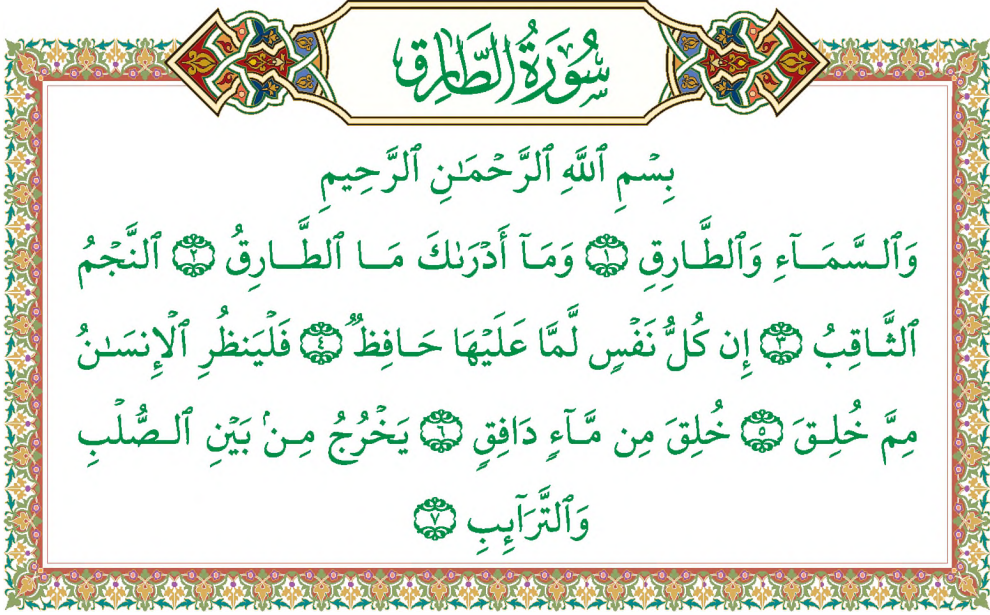 سُورَةُ الطَّارِقِ
بِسْمِ ٱللَّهِ ٱلرَّحْمَـٰنِ ٱلرَّحِيمِ
وَٱلسَّمَآءِ وَٱلطَّارِقِ ١ وَمَآ أَدْرَىٰكَ مَا ٱلطَّارِقُ ٢ ٱلنَّجْمُ
ٱلثَّاقِبُ ٣ إِن كُلُّ نَفْسٍ لَّمَّا عَلَيْهَا حَافِظٌ ٤ فَلْيَنظُرِ ٱلْإِنسَـٰنُ
مِمَّ خُلِقَ ٥ خُلِقَ مِن مَّآءٍ دَافِقٍ ٦ يَخْرُجُ مِنۢ بَيْنِ ٱلصُّلْبِ
وَٱلتَّرَآئِبِ ٧